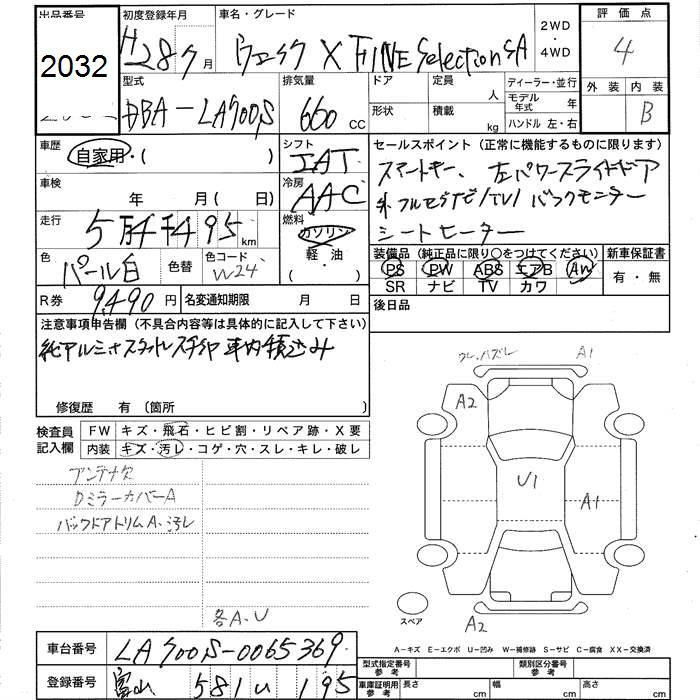 出品番号 初度登録年月 車名・グレード 2WD・4WD 評価点
2032 H28年 月 ウェイク X FINE Selection SA 4
型式 排気量 ドア 定員 人 ディーラー・並行 外装 内装
DBA-LA700S 660 CC 形状 積載 kg モデル年式 年 B
ハンドル 左・右
車歴 自家用・( ) シフト IAT セールスポイント(正常に機能するものに限り)
車検 年 月( 日) 冷房 AAC スマートキー、左パワースライドドア
走行 5万4千495km 燃料 ガソリン フルセグナビ/TV/バックモニター
軽油・( ) シートヒーター
色 パール白 色替 色コード W24 装備品(純正品に限り○をつけてください) 新車保証書
PS PW ABS エアB AW 有・無
SR ナビ TV カワ
R券 9490円 名変通知期限 月 日 後日品
注意事項申告欄(不具合内容等は具体的に記入して下さい)
純アルミナスタッドレス 車内積込み
修復歴 有(箇所 )
ウレ.ハズレ A1
A2
検査員記入欄 FW キズ・飛石・ヒビ割・リペア跡・X要
内装 キズ・汚レ・コゲ・穴・スレ・キレ・破レ
アンテナ欠 U1
DミラーカバーA A1
バックドアトリムA.汚レ
各A.U スペア A2
A-キズ E-エクボ U-凹み W-補修跡 S-サビ C-腐食 XX-交換済
車台番号 LA700S-0065369 型式指定番号 参考 類別区分番号 参考
登録番号 富山 581 195 車庫証明用 参考 長さ cm 幅 cm 高さ cm